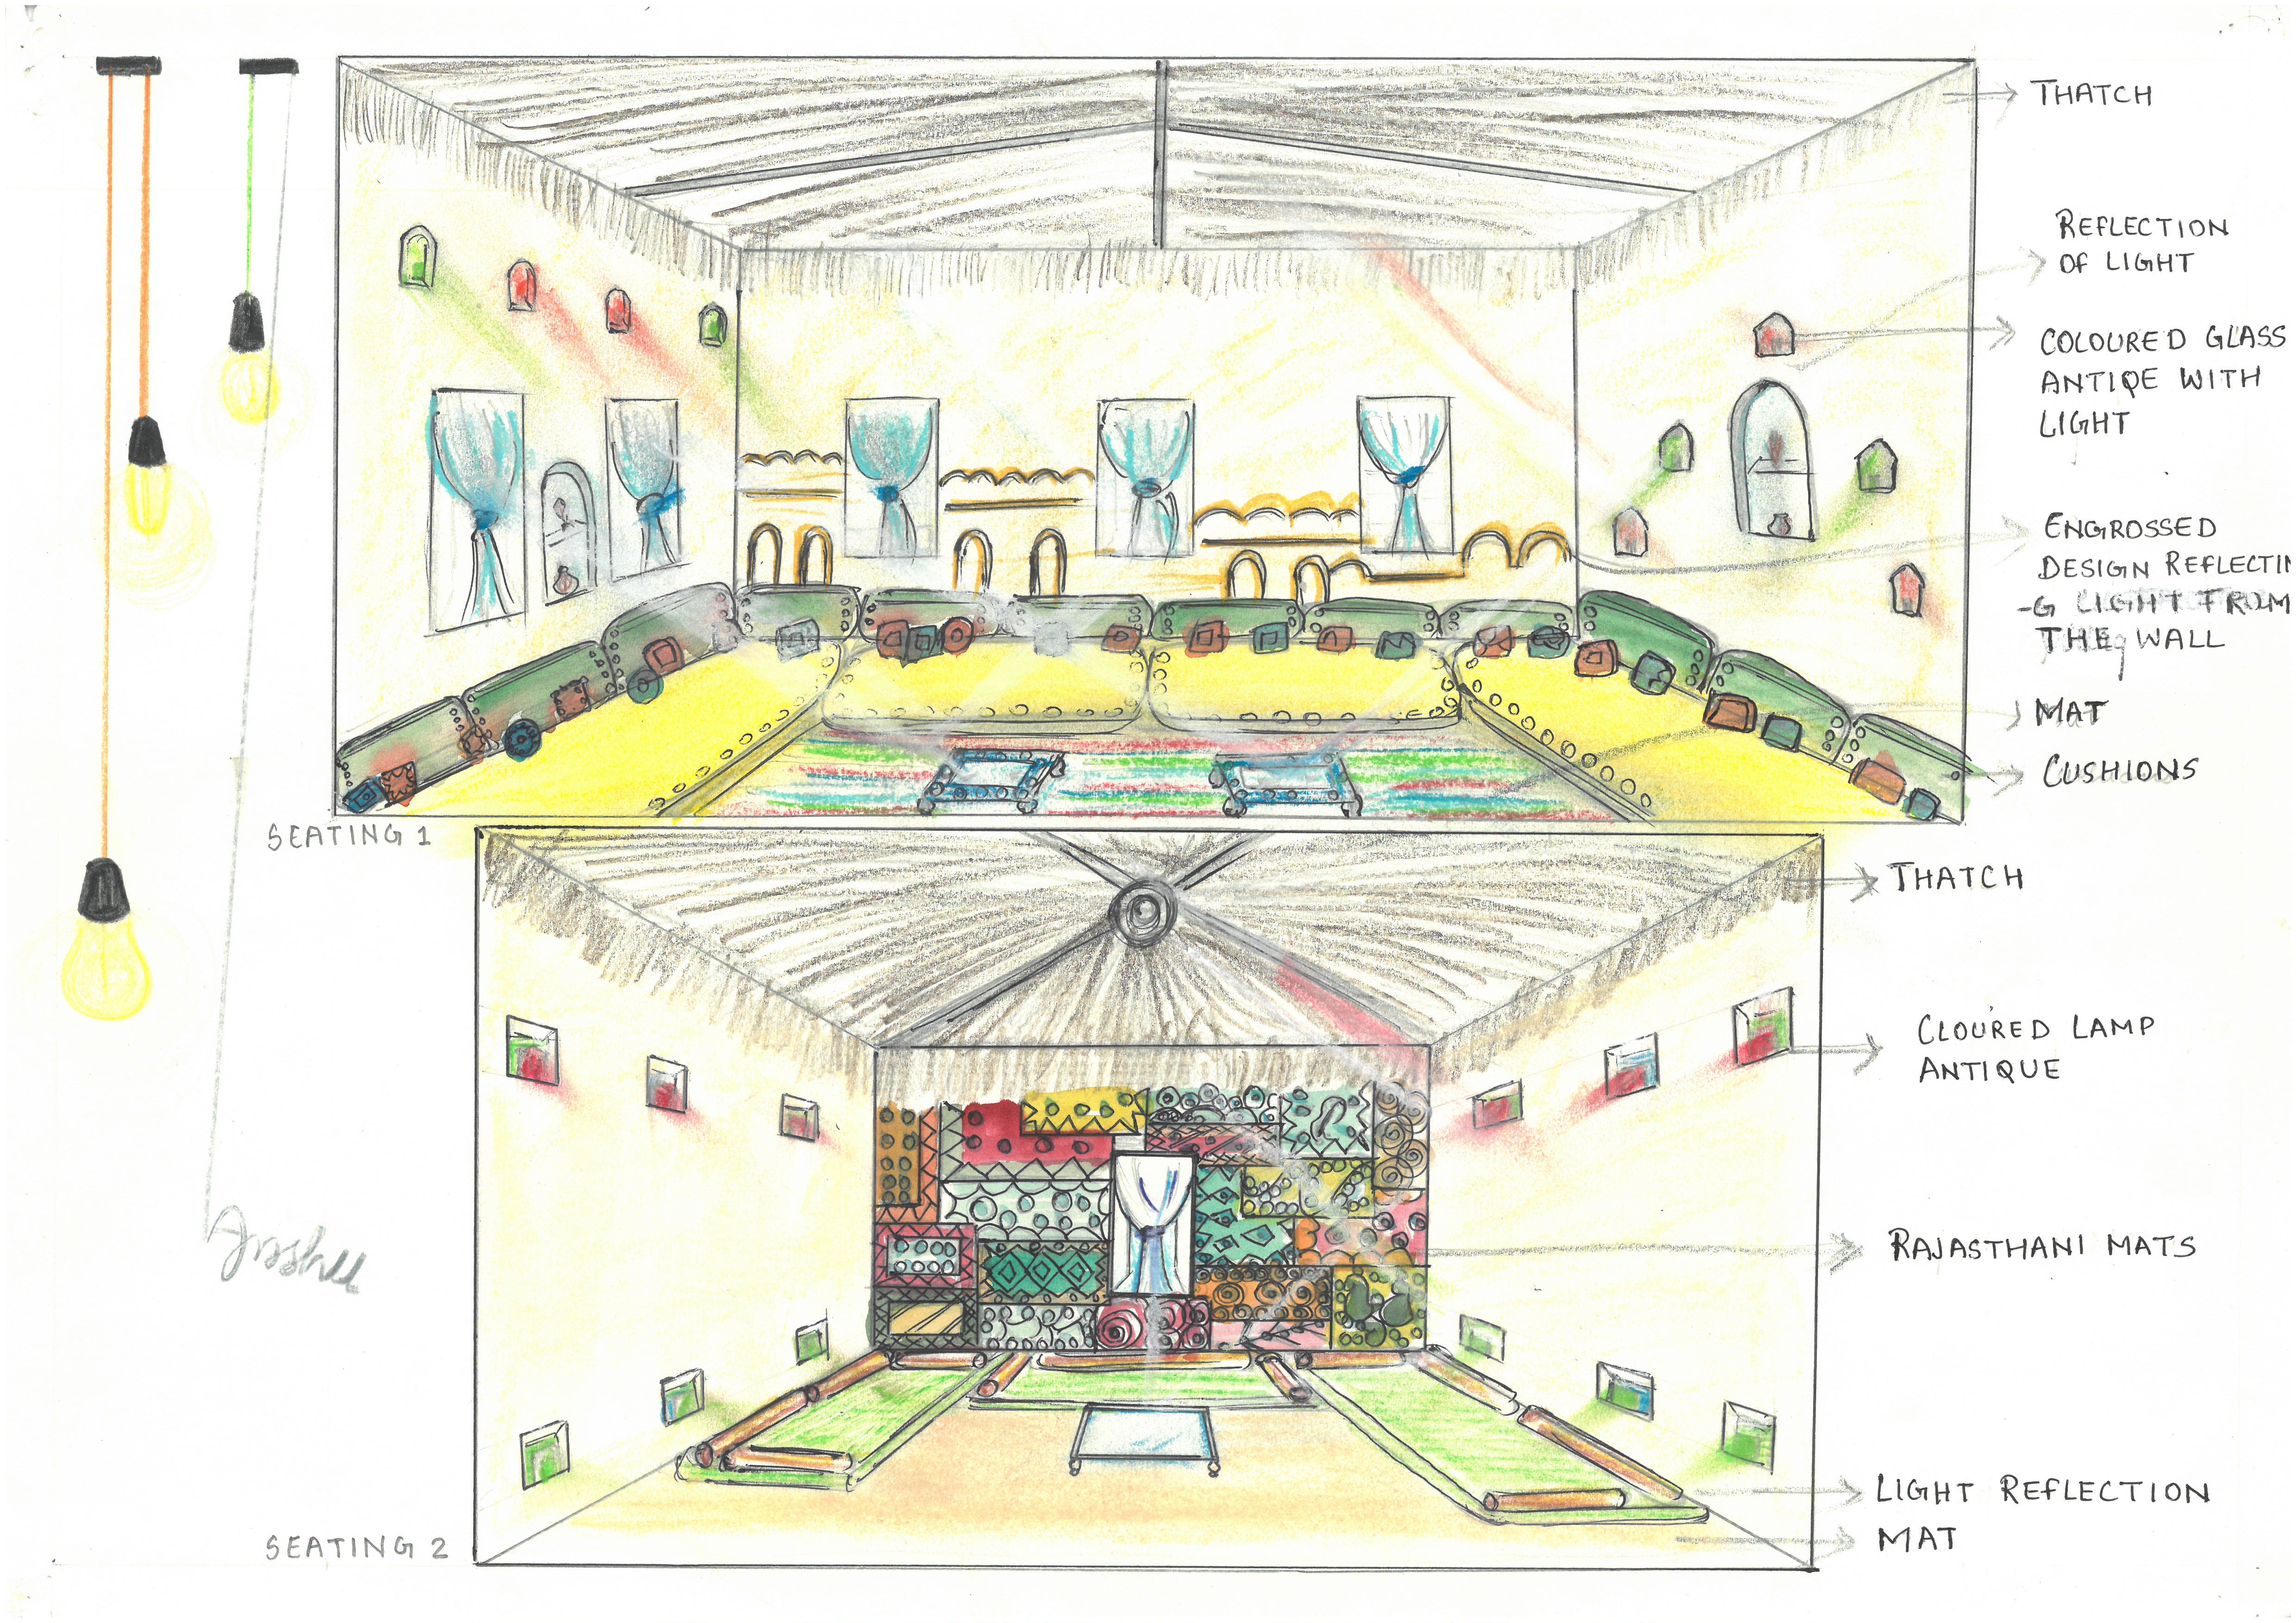 THATCH
REFLECTION
OF LIGHT
COLOURED GLASS
ANTIQE WITH
LIGHT
ENGROSSED
DESIGN REFLECTIN
-G LIGHT FROM
THE WALL
MAT
CUSHIONS
SEATING 1
THATCH
CLOURED LAMP
ANTIQUE
RAJASTHANI MATS
LIGHT REFLECTION
MAT
SEATING 2